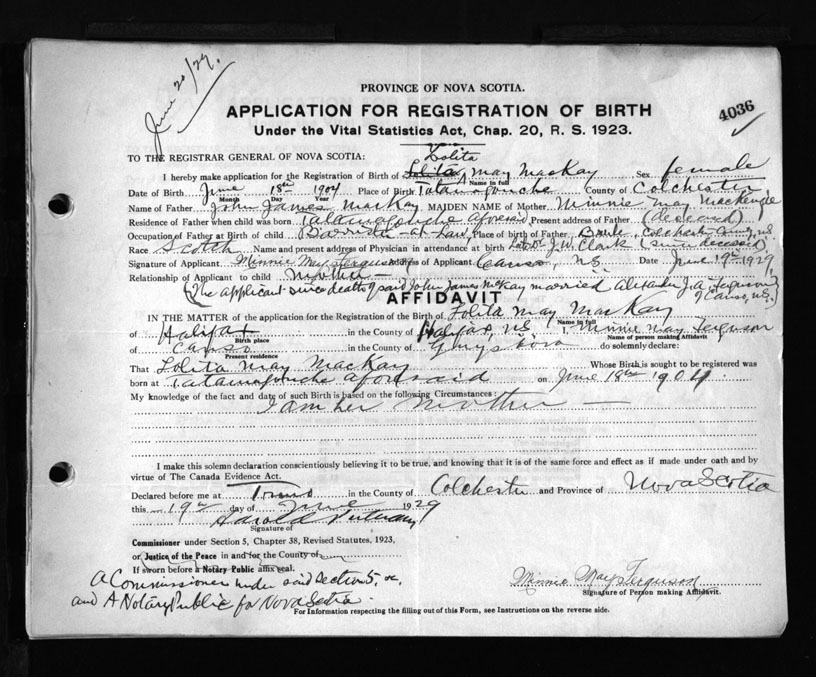 June 20/29.
PROVINCE OF NOVA SCOTIA.
4036
APPLICATION FOR REGISTRATION OF BIRTH
Under the Vital Statistics Act, Chap. 20, R. S. 1923.
TO THE REGISTRAR GENERAL OF NOVA SCOTIA: Lolita
I hereby make application for the Registration of Birth of Lolita May MacKay Sex female
Name in full
Date of Birth June 18th 1904 Place of Birth Tatamagouche County of Colchester
Month Day Year
Name of Father John James MacKay MAIDEN NAME of Mother Minnie May MacKenzie
Residence of Father when child was born Tatamagouche aforesaid Present address of Father (deceased)
Occupation of Father at Birth of child Barrister-at-Law Place of Birth of Father Colchester County, NS
Race Scotch Name and present address of Physician in attendance at birth J.W. Clark (since deceased)
Signature of Applicant Minnie May Ferguson Address of Applicant Canso, NS Date June 19th 1929
Relationship of Applicant to child mother
(The applicant since death of said John James McKay married Alexander J.A. Ferguson of Canso, N.S.)
AFFIDAVIT
IN THE MATTER of the application for the Registration of the Birth of Lolita May MacKay
Name in full
of Halifax in the County of Halifax, NS I, Minnie May Ferguson
Birth place Name of person making Affidavit
of Canso in the County of Guysboro do solemnly declare:
Present residence
That Lolita May MacKay Whose Birth is sought to be registered was
born at Tatamagouche aforesaid on June 18th 1904
My knowledge of the fact and date of such Birth is based on the following Circumstances:
I am her mother
I make this solemn declaration conscientiously believing it to be true, and knowing that it is of the same force and effect as if made under oath and by
virtue of The Canada Evidence Act.
Declared before me at Truro in the County of Colchester and Province of Nova Scotia
this 19th day of June 1929
Harold Putnam
Signature of
Commissioner under Section 5, Chapter 38, Revised Statutes, 1923,
or Justice of the Peace in and for the County of
If sworn before a Notary Public affix seal.
A Commissioner under said section 5, &c.
and A Notary Public for Nova Scotia.
Minnie May Ferguson
Signature of Person making Affidavit.
For Information respecting the filling out of this Form, see Instructions on the reverse side.